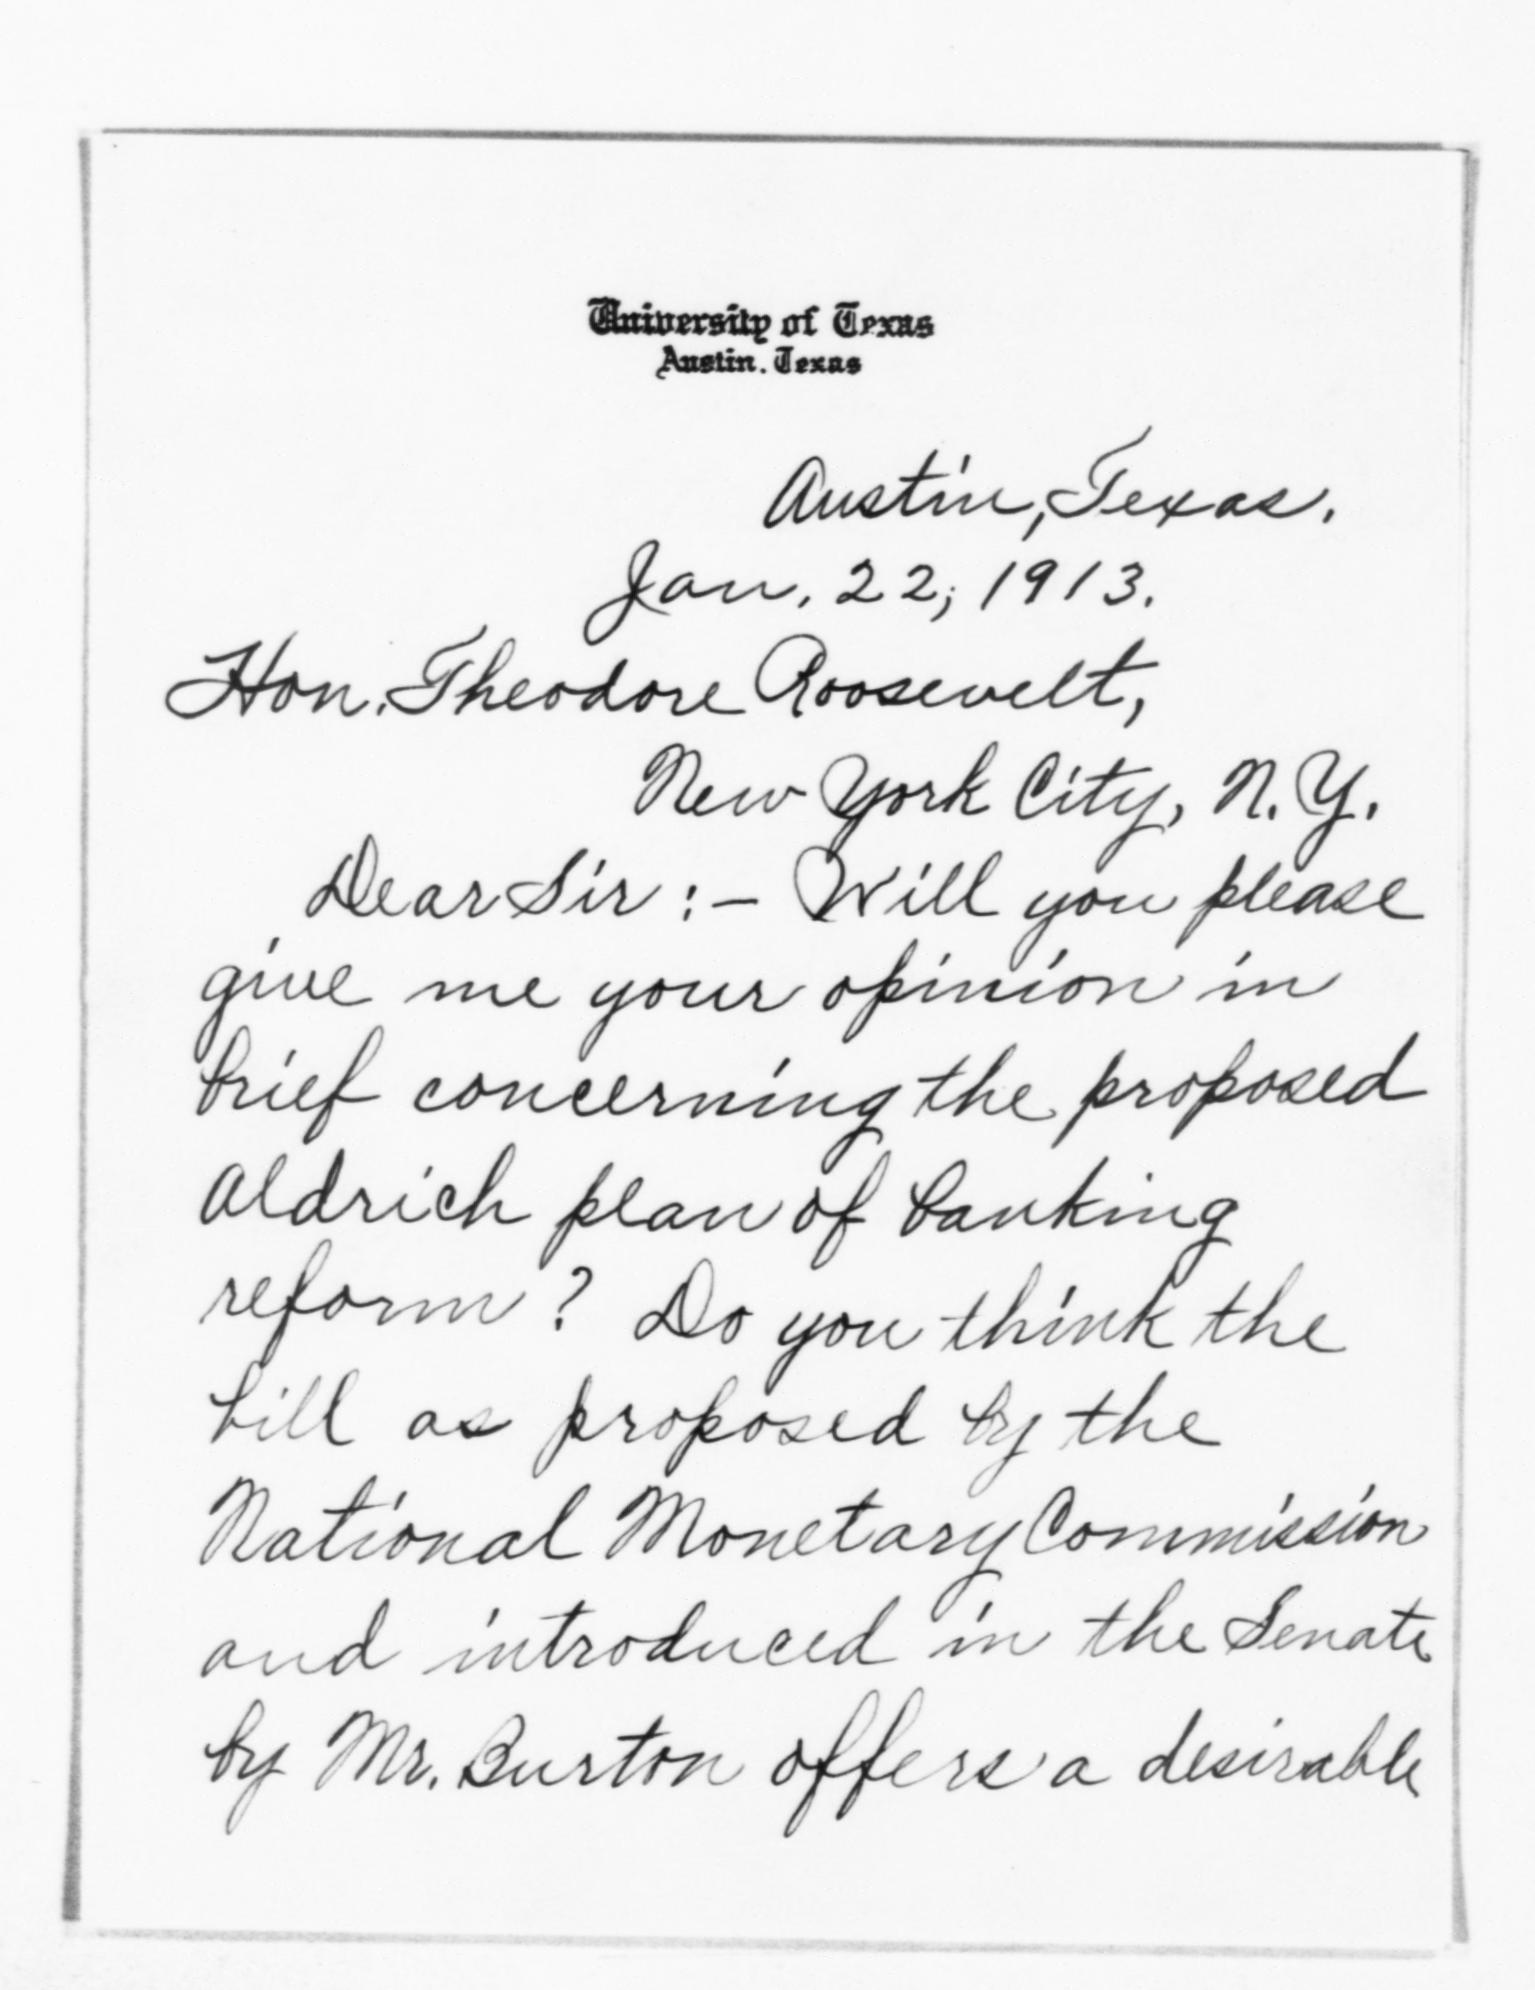 University of Texas
Austin, Texas
Austin, Texas.
Jan. 22, 1913.
Hon. Theodore Roosevelt,
New York City, N. Y.
Dear Sir :– Will you please
give me your opinion in
brief concerning the proposed
Aldrich plan of banking
reform? Do you think the
bill as proposed by the
National Monetary Commission
and introduced in the Senate
by Mr. Burton offers a desirable